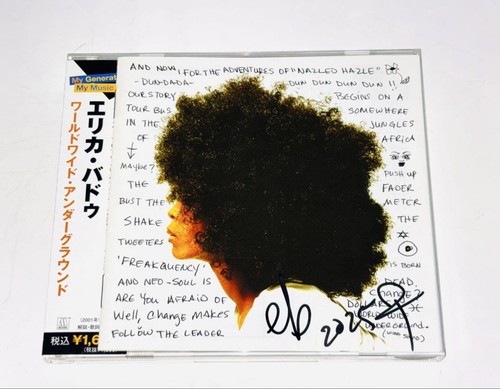 My Generat
My Music
エリカ・バドゥ
ワールドワイド・アンダーグラウンド
税込 ¥1,6
AND NOW, FOR THE ADVENTURES OF "NAZLED HAZLE"
-DUN-DADA- DUN DUN DUN DUN !!
OUR STORY BEGINS ON A
TOUR BUS SOMEWHERE
IN THE JUNGLES
OF AFRICA
MAYBE? PUSH UP
THE FADER
BUST THE METER
SHAKE THE
TWEETERS
'FREAKQUENCY' IS BORN
AND NEO-SOUL IS DEAD.
ARE YOU AFRAID OF Change?
Well, CHANGE MAKES DOLLAR$
FOLLOW THE LEADER WORLDWIDE
UNDERGROUND.
eb 2025